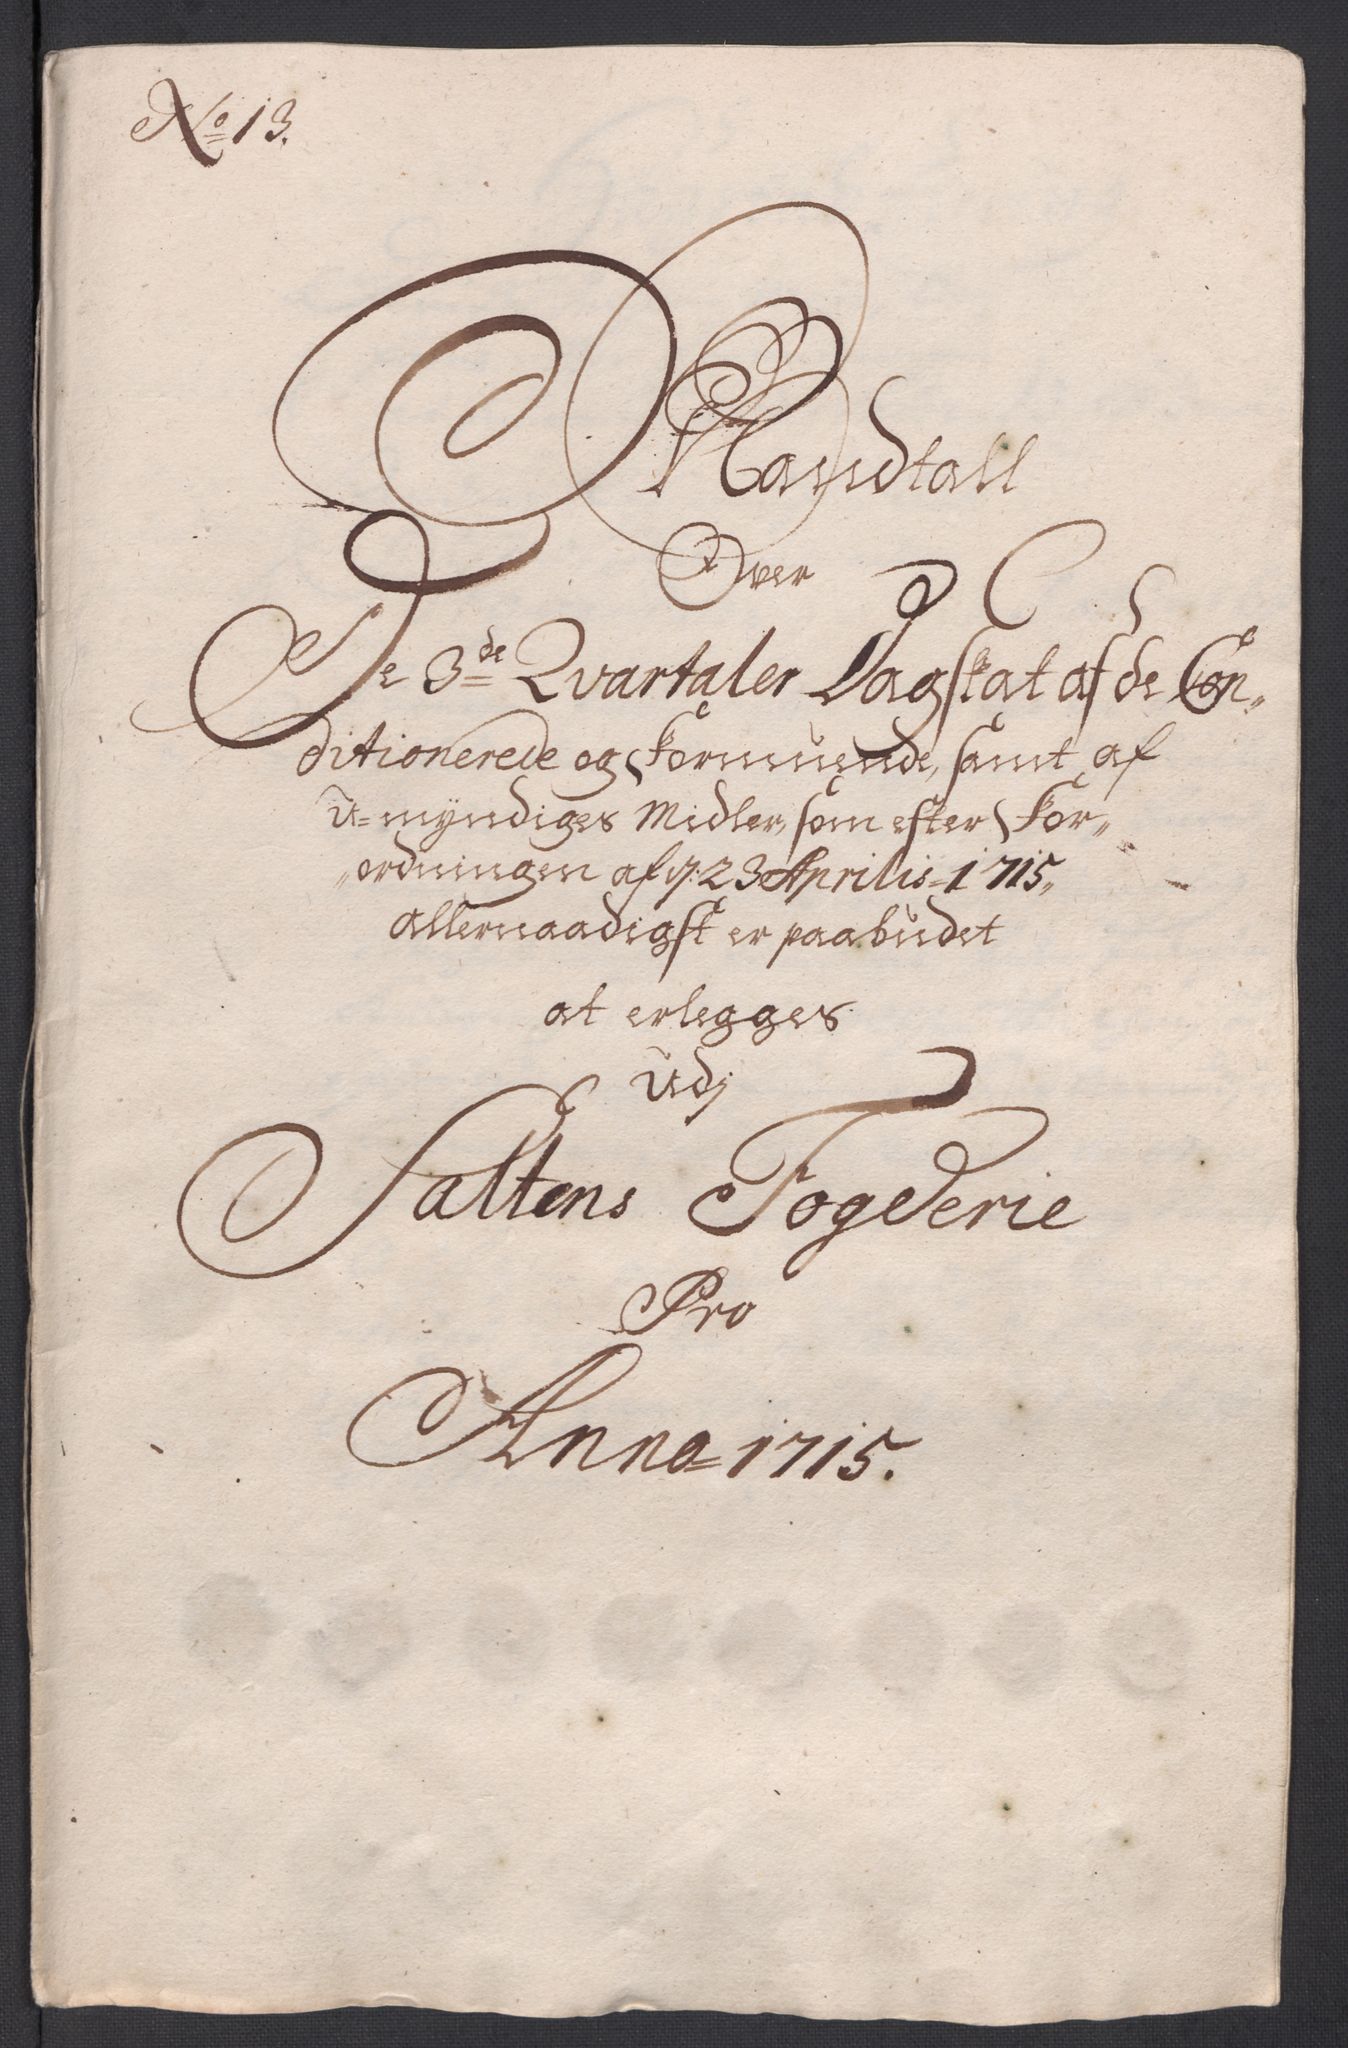 No 13.
Mandtall
Over
De 3de Qvartaler Dagskat af de Con„
ditionerede og Formuende, samt af
U=myndiges Midler, som efter For„
„ordningen af d: 23 Aprilis 1715„
allernaadigst er paabudet
at erlegges
Udj
Saltens Fogderie
Pro
Anno 1715.